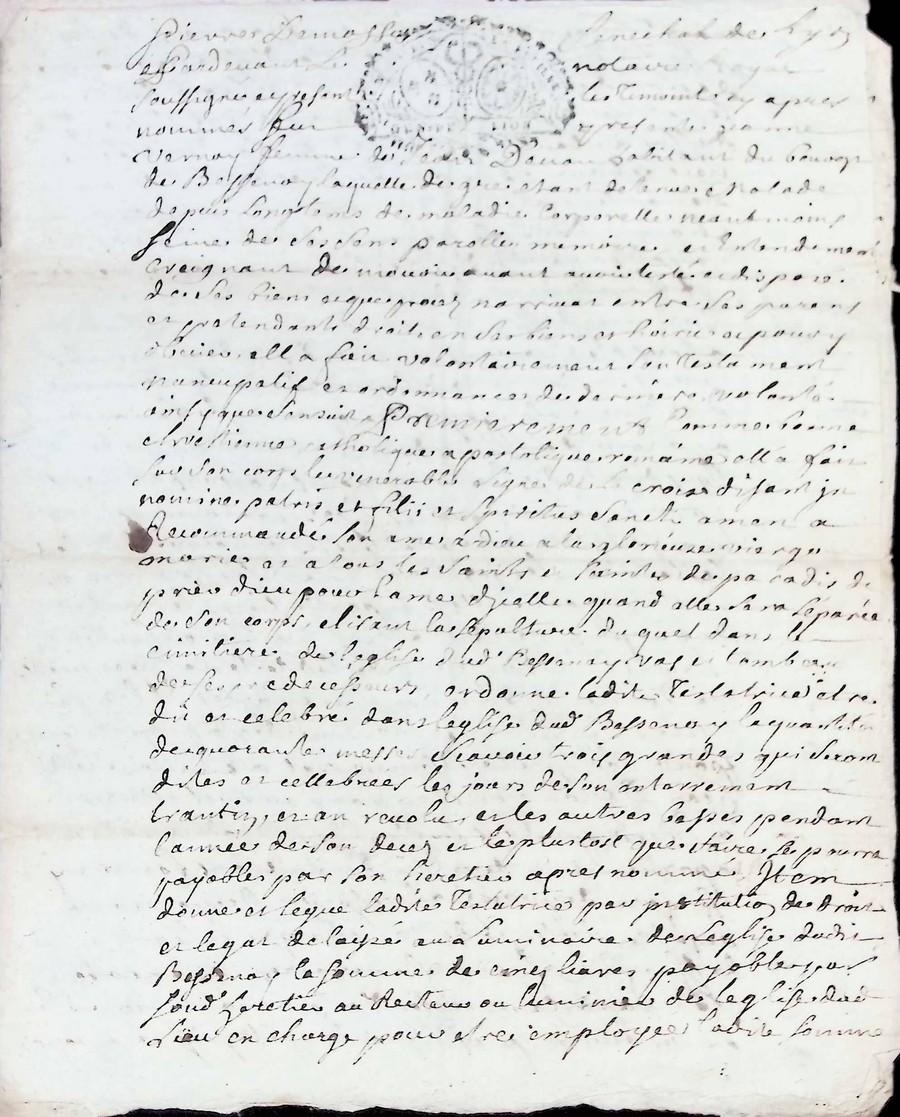 Pierres Senechal de Lyon
e Pardevant Le notaire Royal
soussigne et presents les Temoins cy apres
nommés fut presente jeanne
Vernay femme de Denis habitant du bourg
de Bessenay laquelle de gré etant detenue Malade
depuis longtems de maladie Corporelle neantmoins
seine de ses sens parolle memoire et Entendement
Creignant de mourir avant avoir testé et disposé
de ses biens et que procez narrivat entre ses parents
et pretendants droit en ses biens et hoirie et pour y
obvier ella fait volontairement son testament
nuncupatif et ordonnance de derniere volonté
insy que sensuit Premierement Comme bonne
chretienne catholique apostolique romaine ella fait
sur son corps le venerable signe de la croix disant jn
nomine patris et filii et spiritus sancti amen a
Recommandé son ame a dieu a la glorieuse vierge
marie et a tous les saints et saintes de paradis de
prier dieu pour lame dicelle quand elle sera séparée
de son corps elisant la sepulture duquel dans le
cimitiere de leglise dud Bessenay vas et tombeau
de ses predecesseurs, ordonne ladite Testatrice etre
dit et celebré dans leglise dud Bessenay la quantité
de quarante messes scavoir trois grandes qui seront
dites et cellebrées les jours de son interrement
trantin, et an revolu, et les autres basses pendant
lannée de son decez et le plustost que faire se pourra
payables par son heretier apres nommé, Item
donne et legue ladite Testatrice par institution de droit
et legat delaissé au Luminaire de Leglise dudit
Bessenay la somme de cinq livres payable par
sond heretier au Recteur ou luminier de leglise dud
Lieu en charge pour etre employée ladite somme